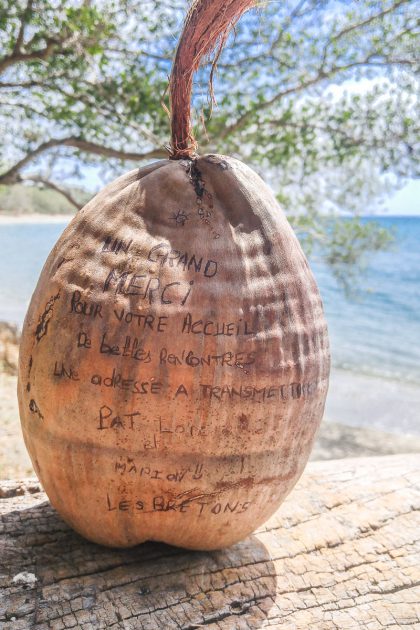 UN GRAND
MERCI
POUR VOTRE ACCUEIL
De belles RENCONTRES
UNE adresse A TRANSMETTRE
PAT
et
LES BRETONS